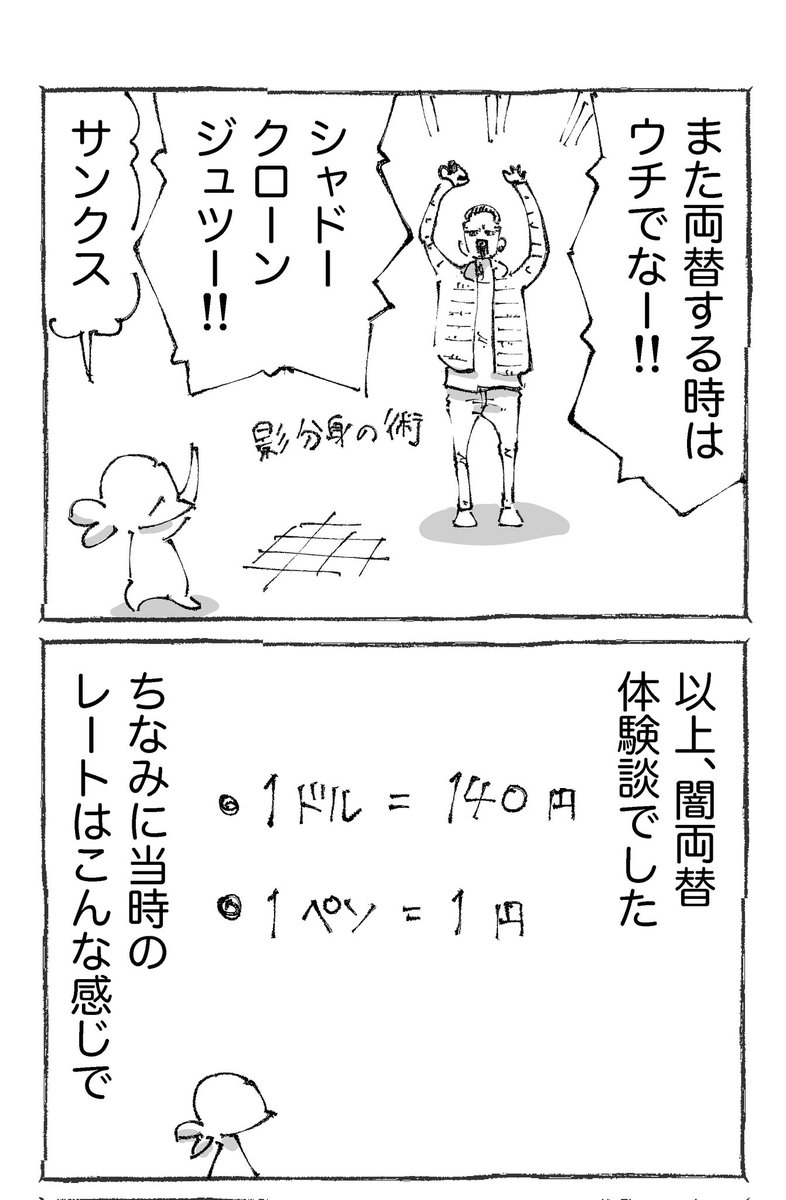 また両替する時は
ウチでなー!!
シャドー
クローン
ジュツー!!
影分身の術
サンクス
以上、闇両替
体験談でした
1ドル = 140円
1ペソ = 1円
ちなみに当時の
レートはこんな感じで